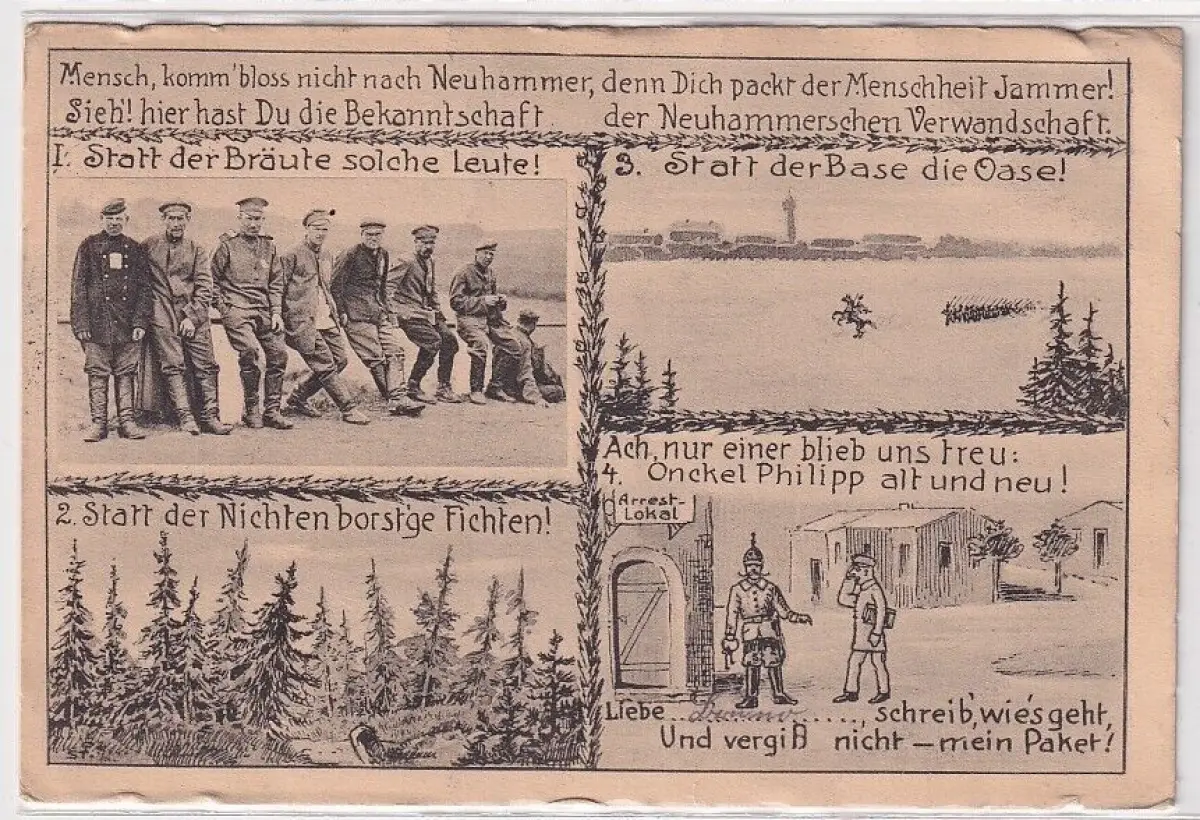 Mensch, komm' bloss nicht nach Neuhammer, denn Dich packt der Menschheit Jammer!
Sieh'! hier hast Du die Bekanntschaft der Neuhammerschen Verwandschaft.
1. Statt der Bräute solche Leute!
2. Statt der Nichten borst'ge Fichten!
3. Statt der Base die Oase!
Ach, nur einer blieb uns treu:
4. Onckel Philipp alt und neu!
Arrest-
Lokal
Liebe ........, schreib', wie's geht,
Und vergiß nicht – mein Paket!